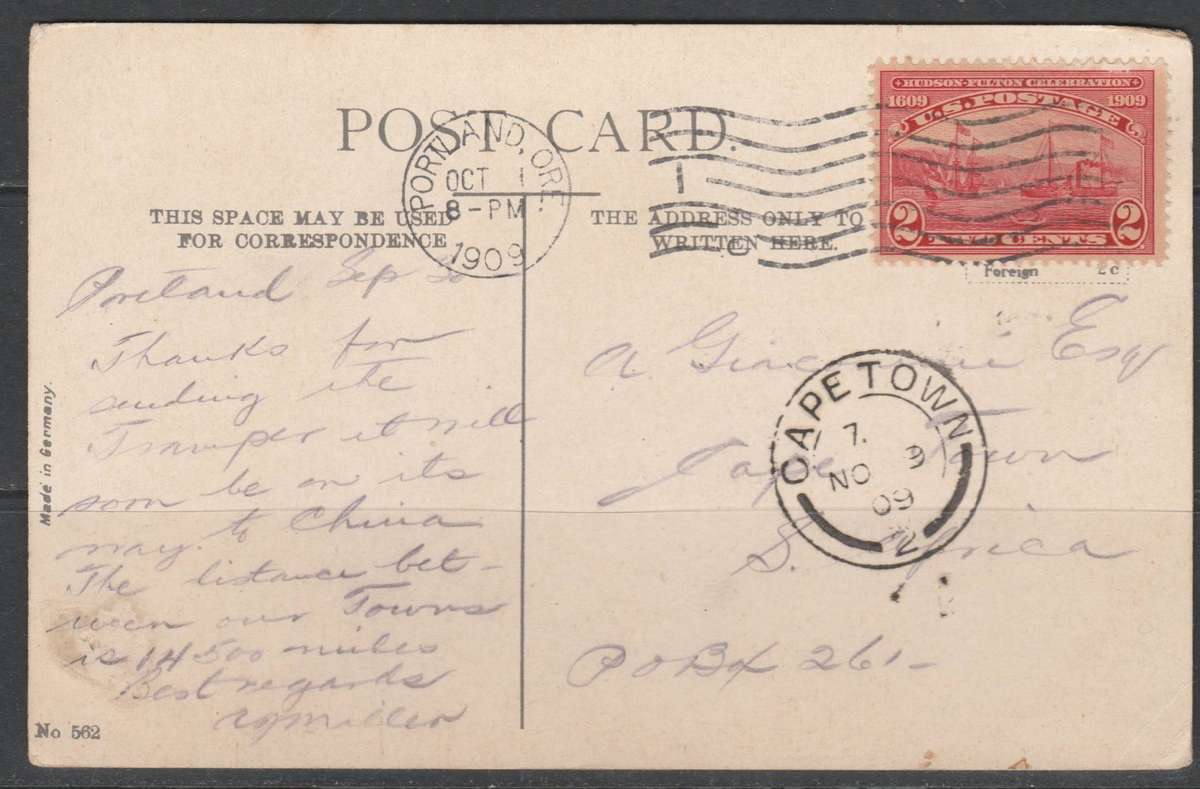 POST CARD.
THIS SPACE MAY BE USED
FOR CORRESPONDENCE
THE ADDRESS ONLY TO
WRITTEN HERE.
PORTLAND, ORE
OCT 1
8-PM
1909
HUDSON-FULTON CELEBRATION
1609 1909
U.S. POSTAGE
2 TWO CENTS 2
Foreign 2c
Portland Sep
Thanks for
sending the
Tramper it will
soon be on its
way to China
The distance bet-
ween our Towns
is 14500 miles
Best regards
Miller
Made in Germany.
No 562
A Esq
Cape Town
S. Africa
P O Box 261-
CAPE TOWN
7.
NO 9
09
12